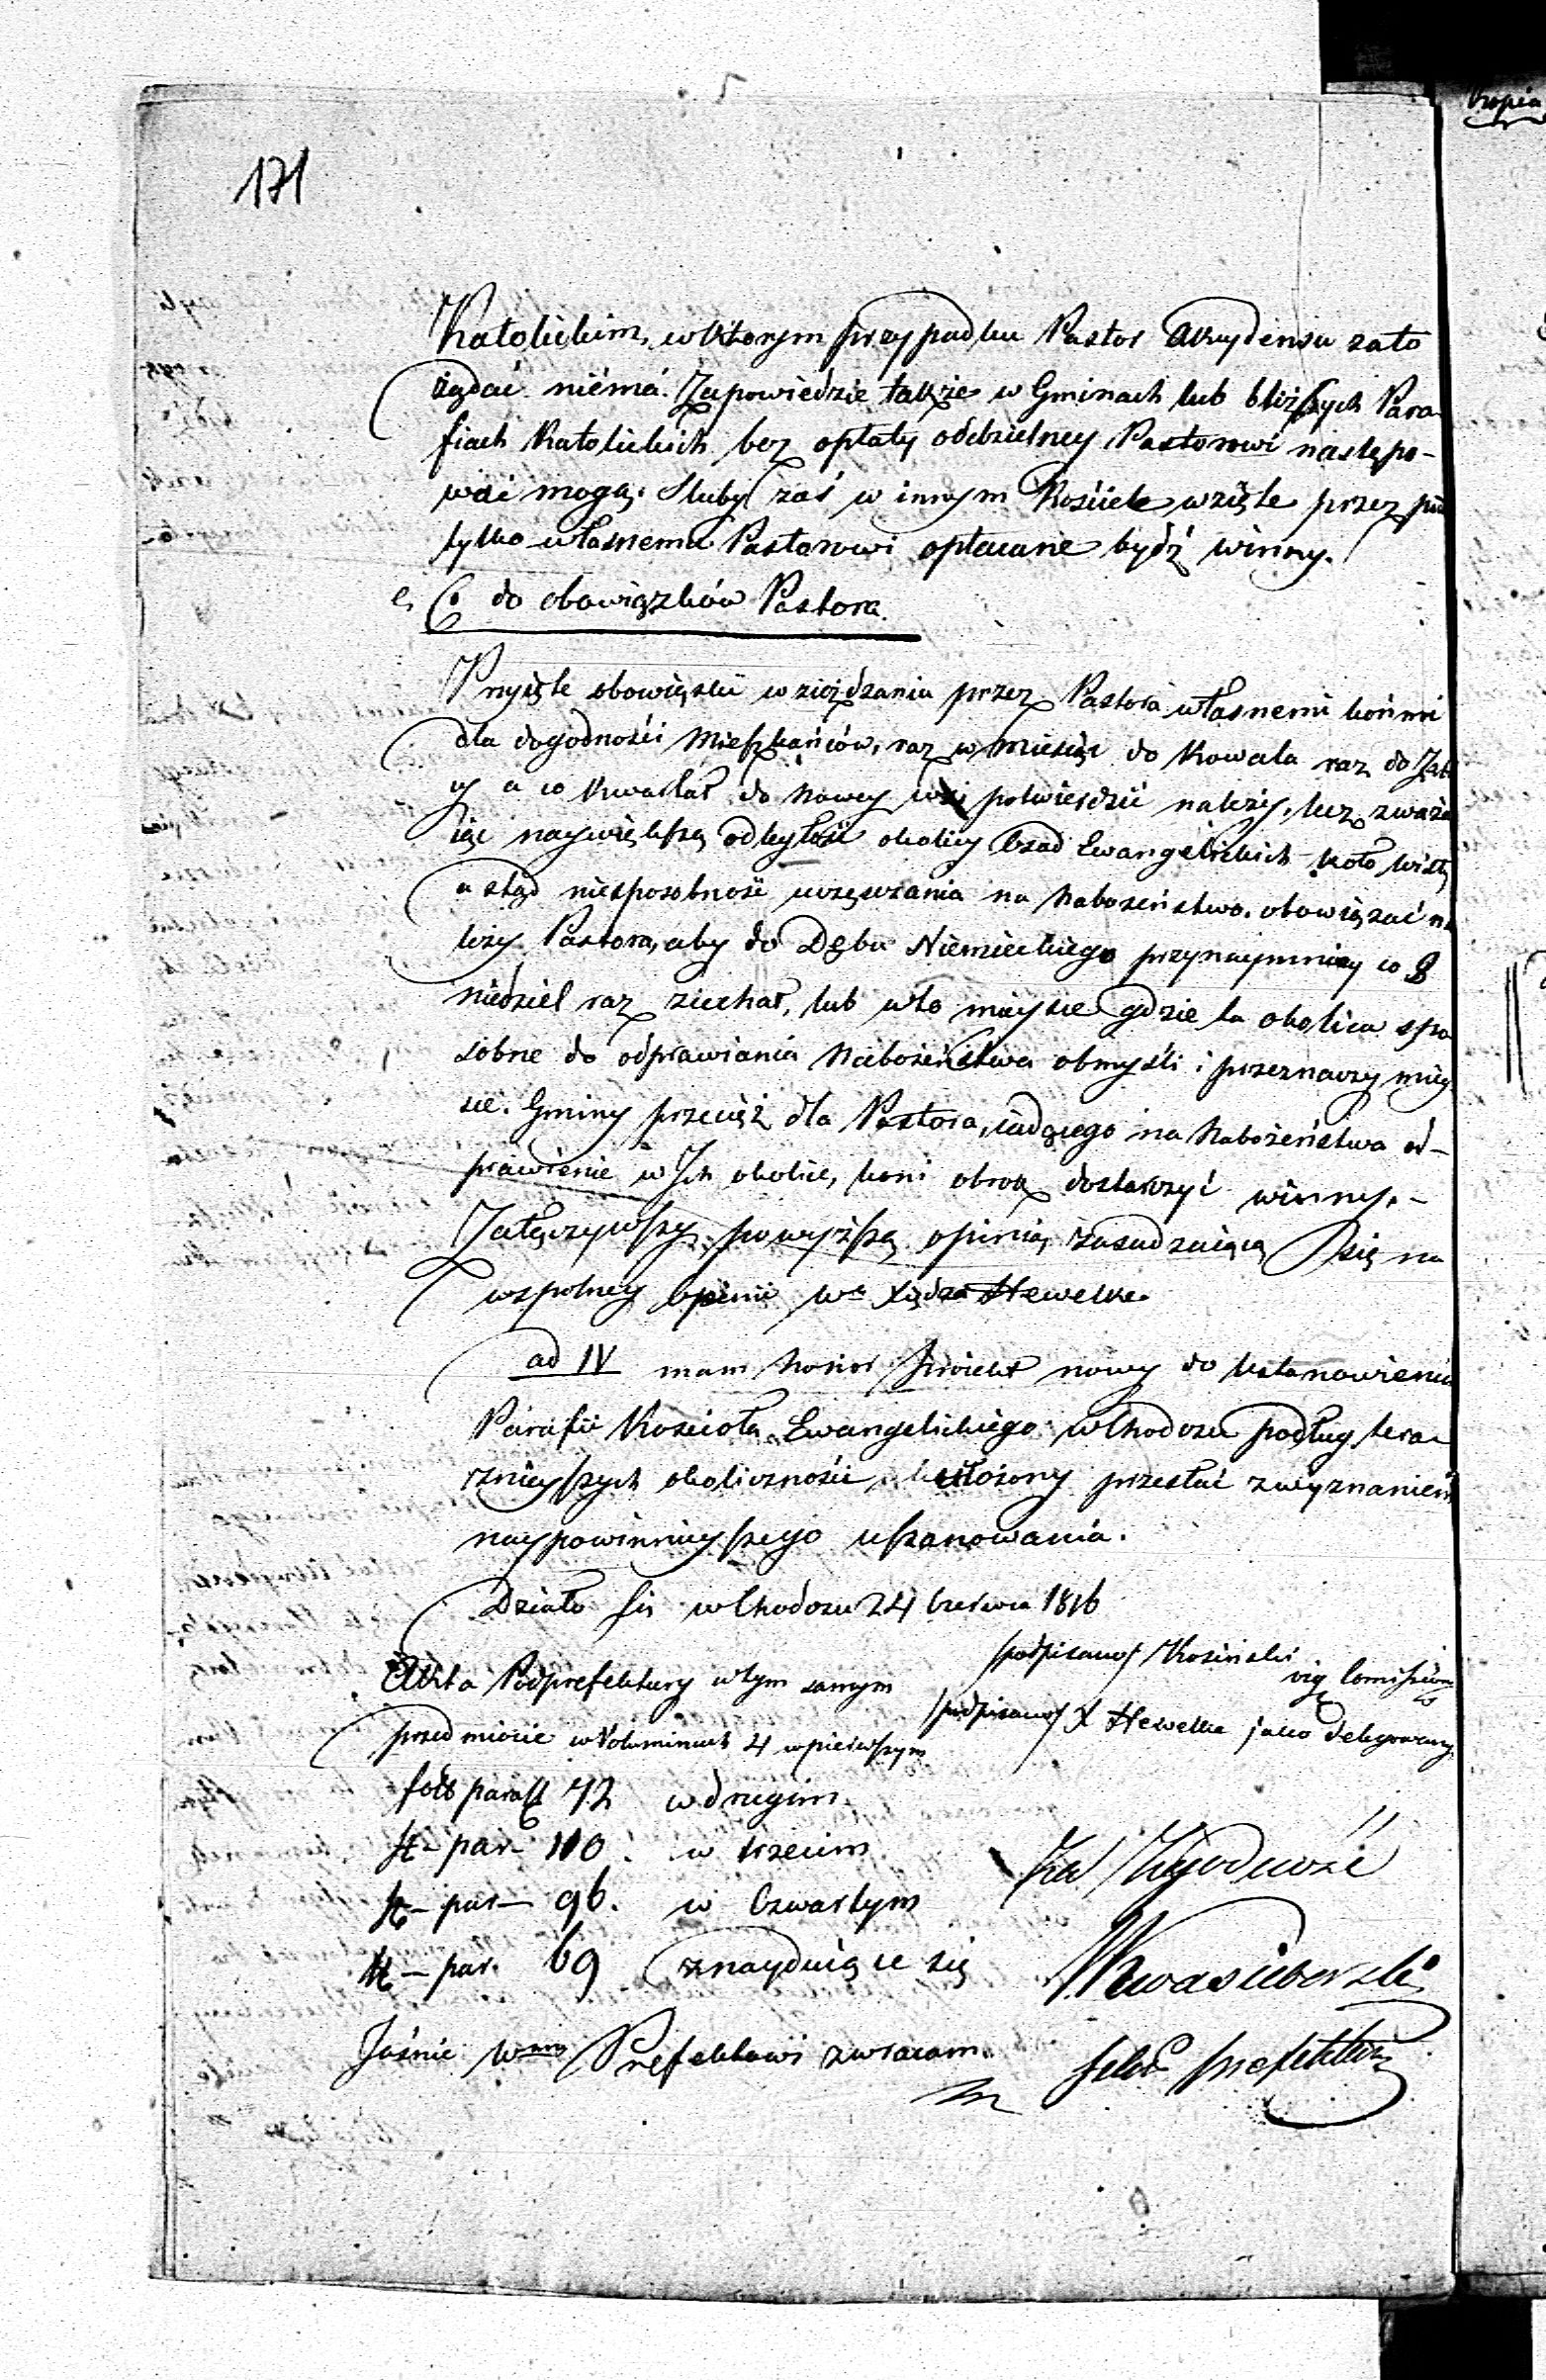 171
Kropia
Katolickim, w ktorym przypadku Pastor Akcydensu zato
żądać niema. Zapowiedzie także w Gminach lub bliższych Para-
fiach Katolickich bez opłaty oddzielney Pastorowi nastepo-
wać mogą. Sluby zaś w innym Kościele wzięte przez
tylko własnemu Pastorowi opłacane bydź winny.
e, Co do obowiązków Pastora.
Przyięte obowiąski wzieżdzania przez Pastora własnemi końmi
dla dogodności Mieszkańców, raz w miesiąc do Kowala raz do
y a co kwartał do Nowey wsi potwierdzić należy, lecz zważa
iąc naywiększą odległość okolicy Osad Ewangelickich koło Wisły
a stąd niesposobność uczęszania na Nabożeństwo. obowiązać na
leży Pastora, aby do Dębu Niemieckiego przynaymniey co 8
niedziel raz ziechał, lub w to mieysce gdzie ta okolica spo
sobne do odprawiania Nabożeństwa obmyśli i przeznaczy miey
sce. Gminy przecięż dla Pastora, iadącego na Nabożeństwa od-
prawienie w Ich okolice, koni obrok dostarczyć winny.-
Załączywszy powyższą opinią zasadzaiącą się na
wspolney opinii Wo Xiędza Hewelke.
ad IV mam honor proiekt nowy do Ustanowienia
Parafii Kościoła Ewangelickiego w Chodczu podług tera-
znieyszych okoliczności ułożony przesłać z wyznaniem
naypowinnieyszego uszanowania.
Działo się w Chodczu 24 Czerwca 1816
/podpisano/ Kosinski
/podpisano/ X Hewelke jako delegowany
Akta Podprefektury w tym samym
przedmiocie w Voluminach 4 w pierwszym
fol paraff 72 w drugim
ft - par - 110. w trzecim
ft - par - 96. w Czwartym
ft - par. 69 znayduiące się
Jaśnie Wmu Prefektowi zwracam.
Za Zgodność
Kwasiborski
Sekr Prefektury